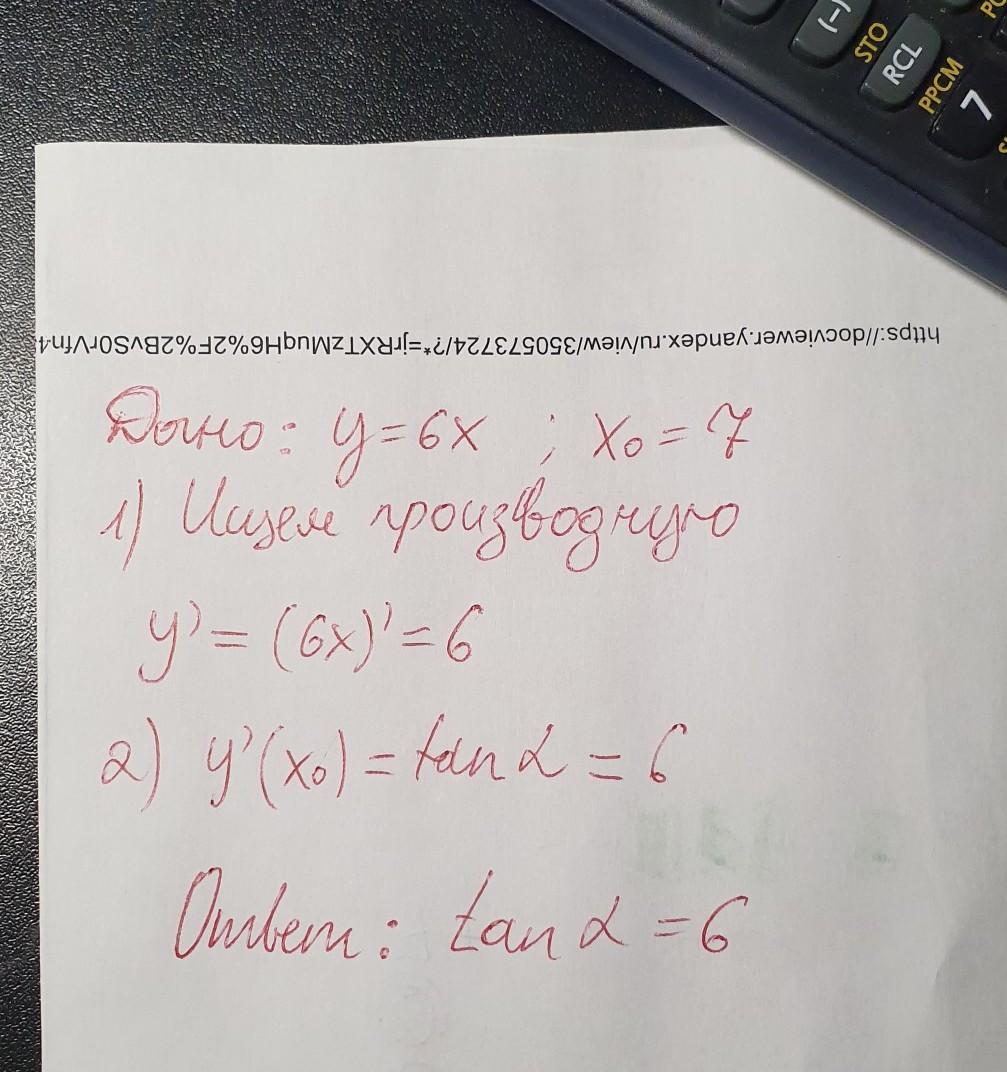 (-)
STO
RCL
PPCM
7
https://docviewer.yandex.ru/view/350573724/?*=jrRXTzMuqH6%2F%2BvS0rVfn4
Дано: y=6x ; x₀=7
1) Ищем производную
y'=(6x)'=6
2) y'(x₀)=tanα=6
Ответ: tanα=6